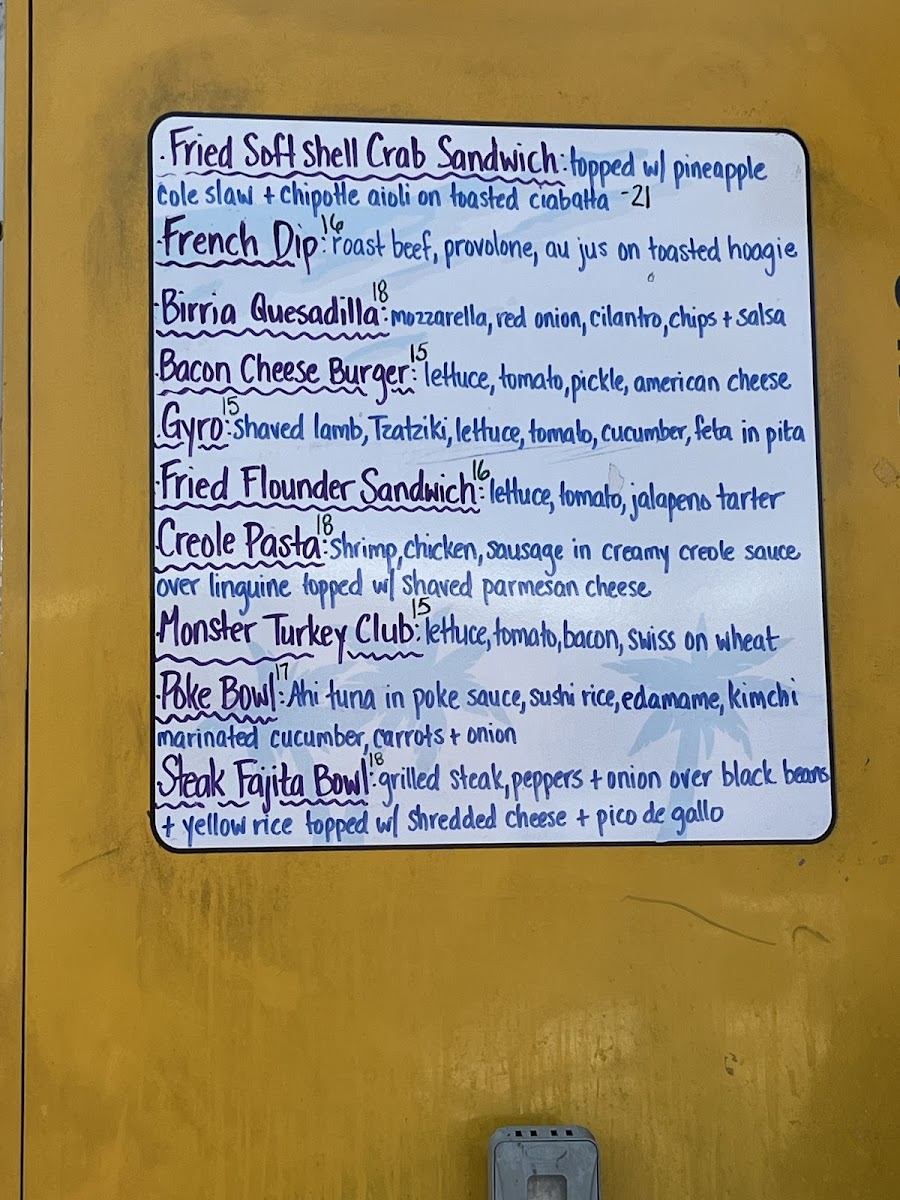 · Fried Soft Shell Crab Sandwich: topped w/ pineapple
cole slaw + chipotle aioli on toasted ciabatta - 21
· French Dip: 16 roast beef, provolone, au jus on toasted hoagie
· Birria Quesadilla: 18 mozzarella, red onion, cilantro, chips + salsa
· Bacon Cheese Burger: 15 lettuce, tomato, pickle, american cheese
· Gyro: 15 shaved lamb, Tzatziki, lettuce, tomato, cucumber, feta in pita
· Fried Flounder Sandwich: 16 lettuce, tomato, jalapeno tarter
· Creole Pasta: 18 shrimp, chicken, sausage in creamy creole sauce
over linguine topped w/ shaved parmesan cheese
· Monster Turkey Club: 15 lettuce, tomato, bacon, swiss on wheat
· Poke Bowl: 17 Ahi tuna in poke sauce, sushi rice, edamame, kimchi
marinated cucumber, carrots + onion
Steak Fajita Bowl: 18 grilled steak, peppers + onion over black beans
+ yellow rice topped w/ shredded cheese + pico de gallo